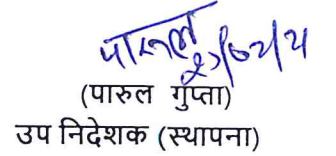 पारुल
(पारुल गुप्ता)
उप निदेशक (स्थापना)